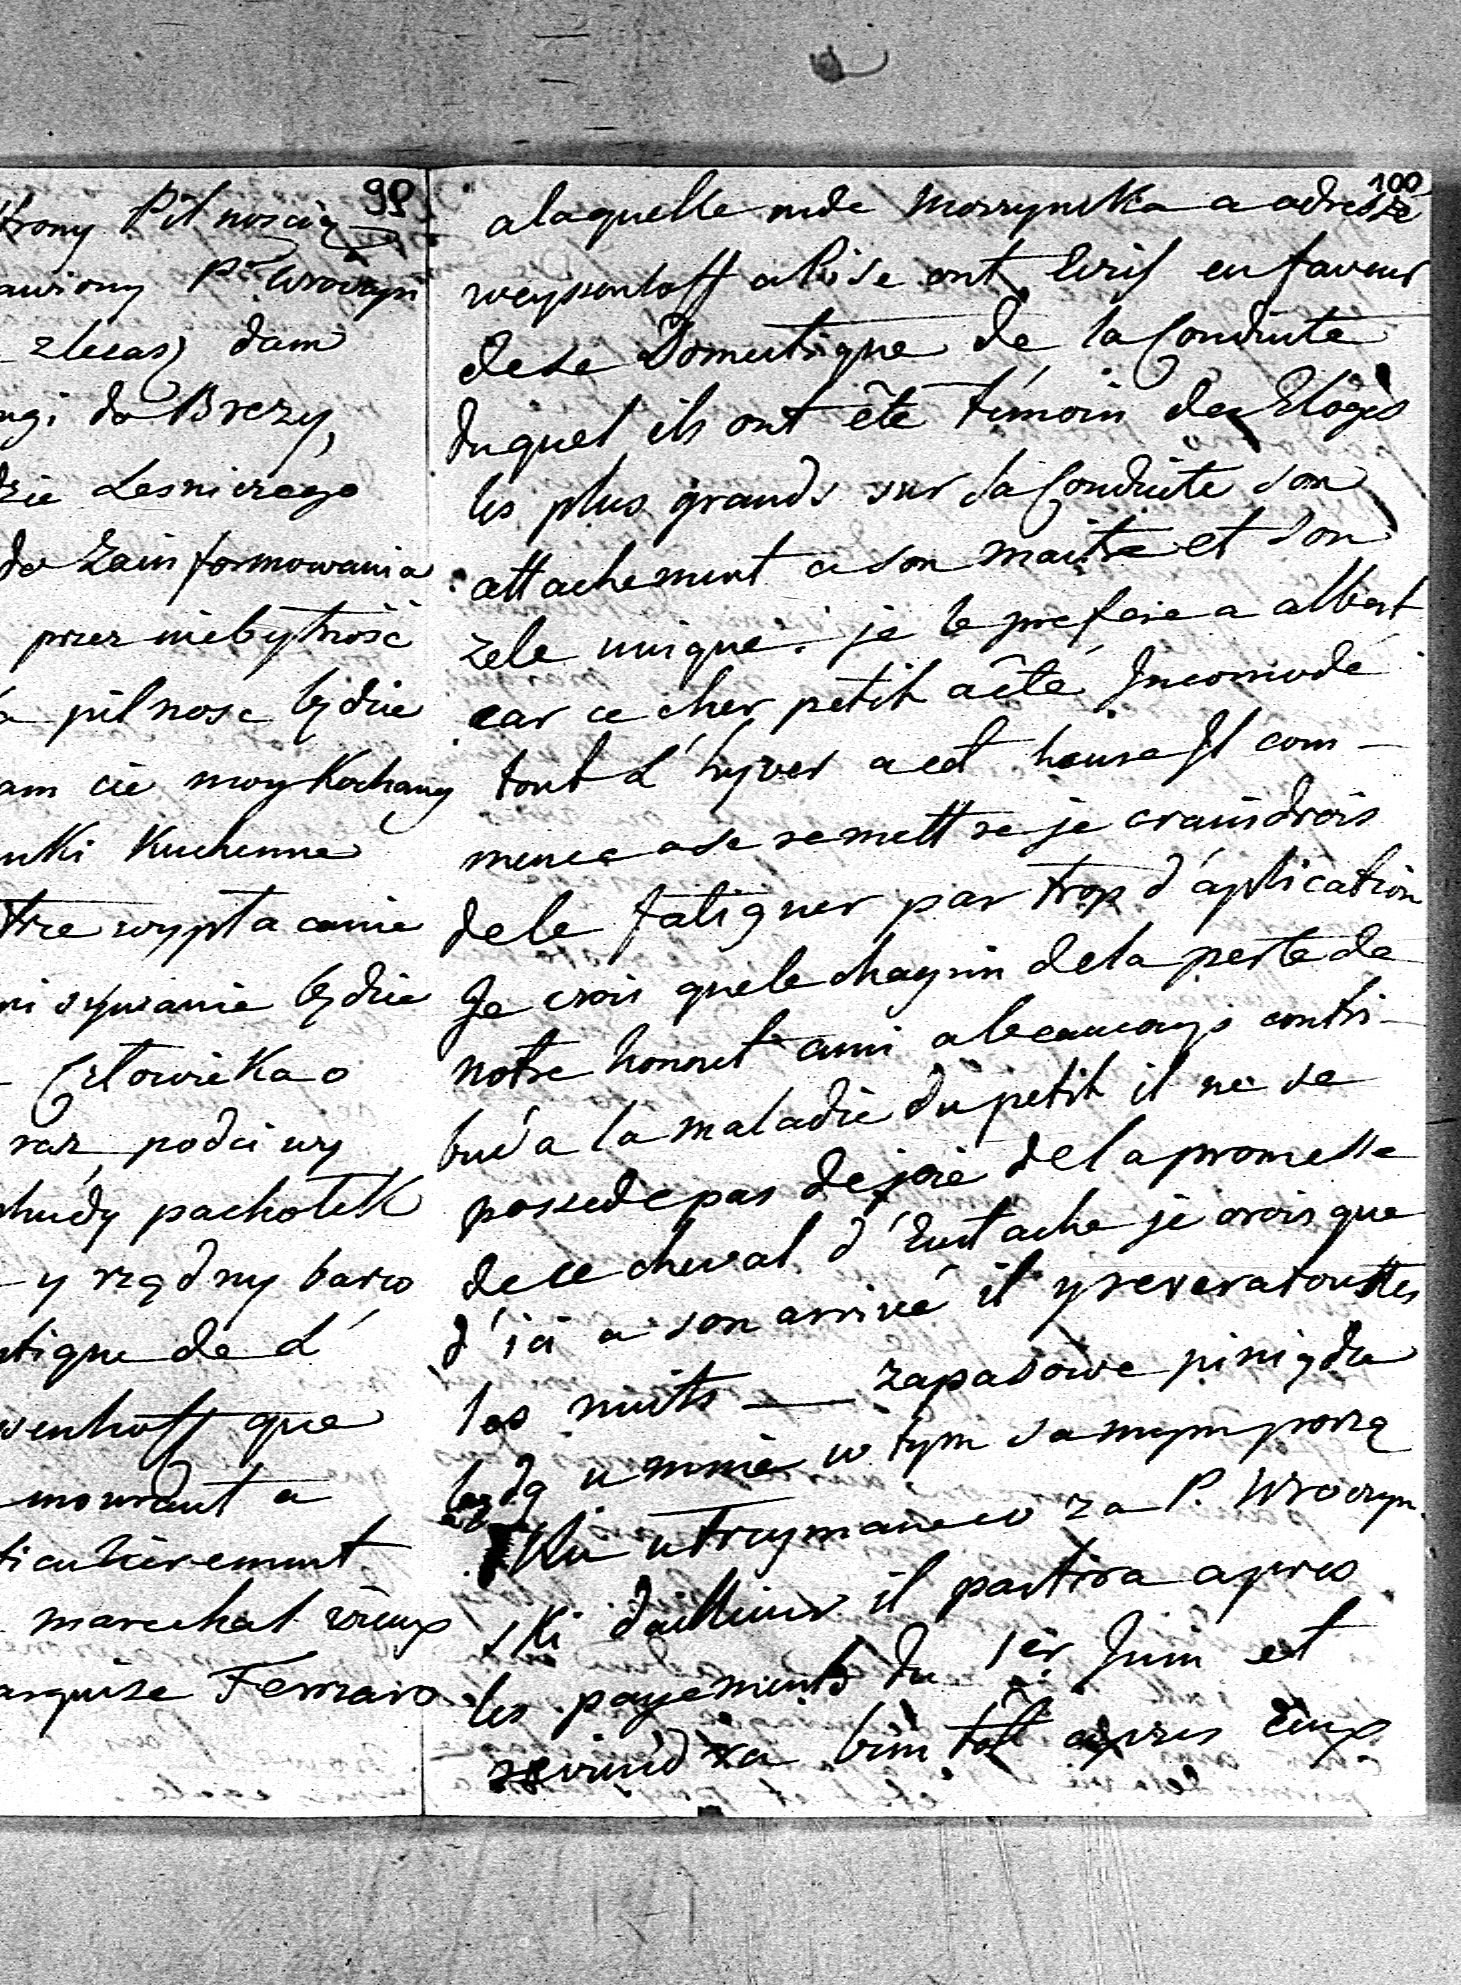 99
trony Pilnoscią
awiony P. Wroczyń
zlecasz dam
ugi do Brezy,
dzie Lesniczego
do Zainformowania
przez niebytność
a pilnosc będzie
am cie moy Kochany
unki Kuchenne
tre wypłacanie
ni sywanie będzie
Człowieka o
raz podciwy
chudy pachołek
y rządny barzo
stique de L'
senhoff que
mourant a
ticulièrement
marechal vieux
arquise Ferraro
100
alaquelle mde Moszynska a adressé
weyssenhoff a Pise ont Ecris en faveur
de se Domestique de la Conduite
duquel ils ont êté temoin des Eloges
les plus grands sur sa Conduite son
attachement a son maitre et son
zele unique. je le prefere a albert
car ce cher petit a êté Incomodé
tout L'hyver a cet heure Il com-
mence a se remettre je craindrois
de le fatiguer par trop d'aplication
Je crois que le chagrin de la perte de
notre honnet ami a beaucoups contri-
bué a la maladie du petit il ne se
possede pas de joie de la promesse
de ce cheval d'Eustache je crois que
d'ici a son arrivé il y revera touttes
les nuits — zapasowe pieniądze
będą u mnie w tym samym porzą
ku utrzymane co za P. Wroczyn
ski dailleurs il partira apres
les payements du 1er Juin et
reviendra bientôt apres eux